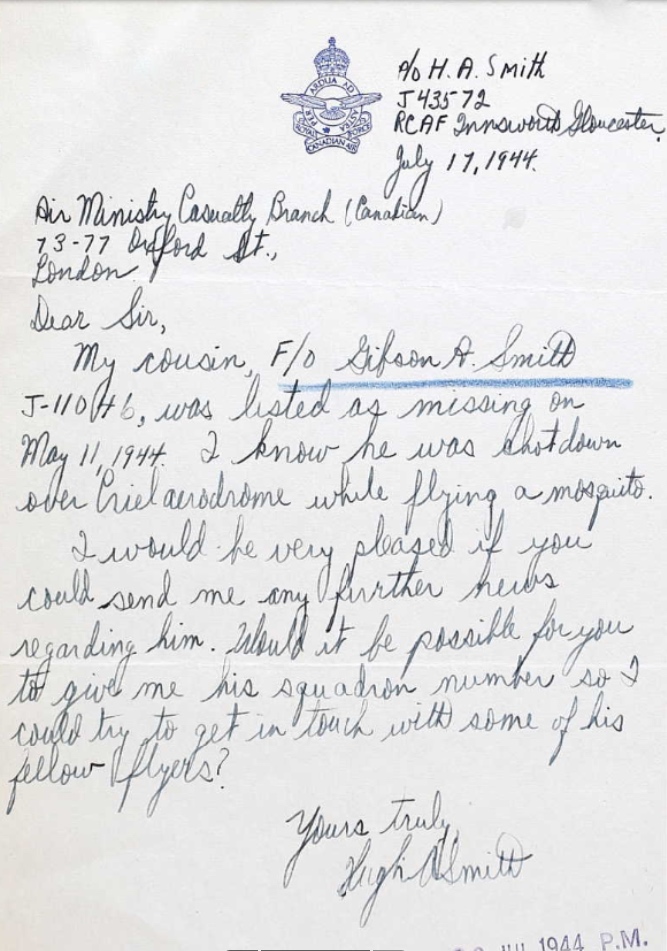 PER ARDUA AD ASTRA
ROYAL CANADIAN AIR FORCE
P/O H. A. Smith
J43572
RCAF Innsworth Gloucester.
July 17, 1944.
Air Ministry Casualty Branch (Canadian)
73-77 Oxford St.,
London
Dear Sir,
My cousin, F/O Gibson A. Smith
J-11046, was listed as missing on
May 11, 1944. I know he was shot down
over Criel aerodrome while flying a mosquito.
I would be very pleased if you
could send me any further news
regarding him. Would it be possible for you
to give me his squadron number so I
could try to get in touch with some of his
fellow flyers?
Yours truly,
Hugh A Smith
JUL 1944 P.M.